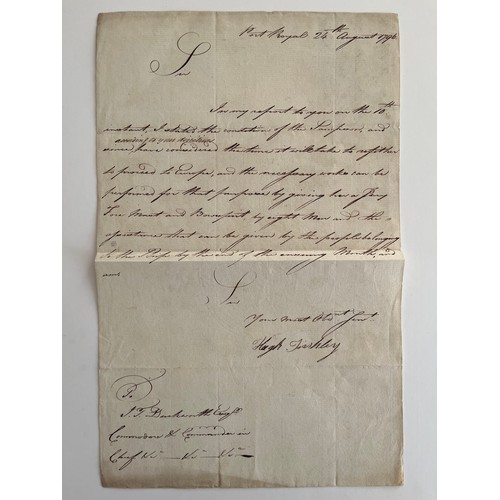 Port Royal 24th August 1796
Sir
In my report to you on the 10th
instant, I stated the of the and
according to your
since, have considered the time it will take to refit her
to proceed to Europe, and the necessary works can be
performed for that purpose by giving her a Jury
Fore Mast and Bowsprit by eight Men and the
assistance that can be given by the people belonging
to the Ship by the end of the ensuing Month, and
am
Sir
Your most Obdt. Servt.
Hugh
To
J. T. Duckworth Esqr.
Commodore & Commander in
Chief &c — &c — &c —